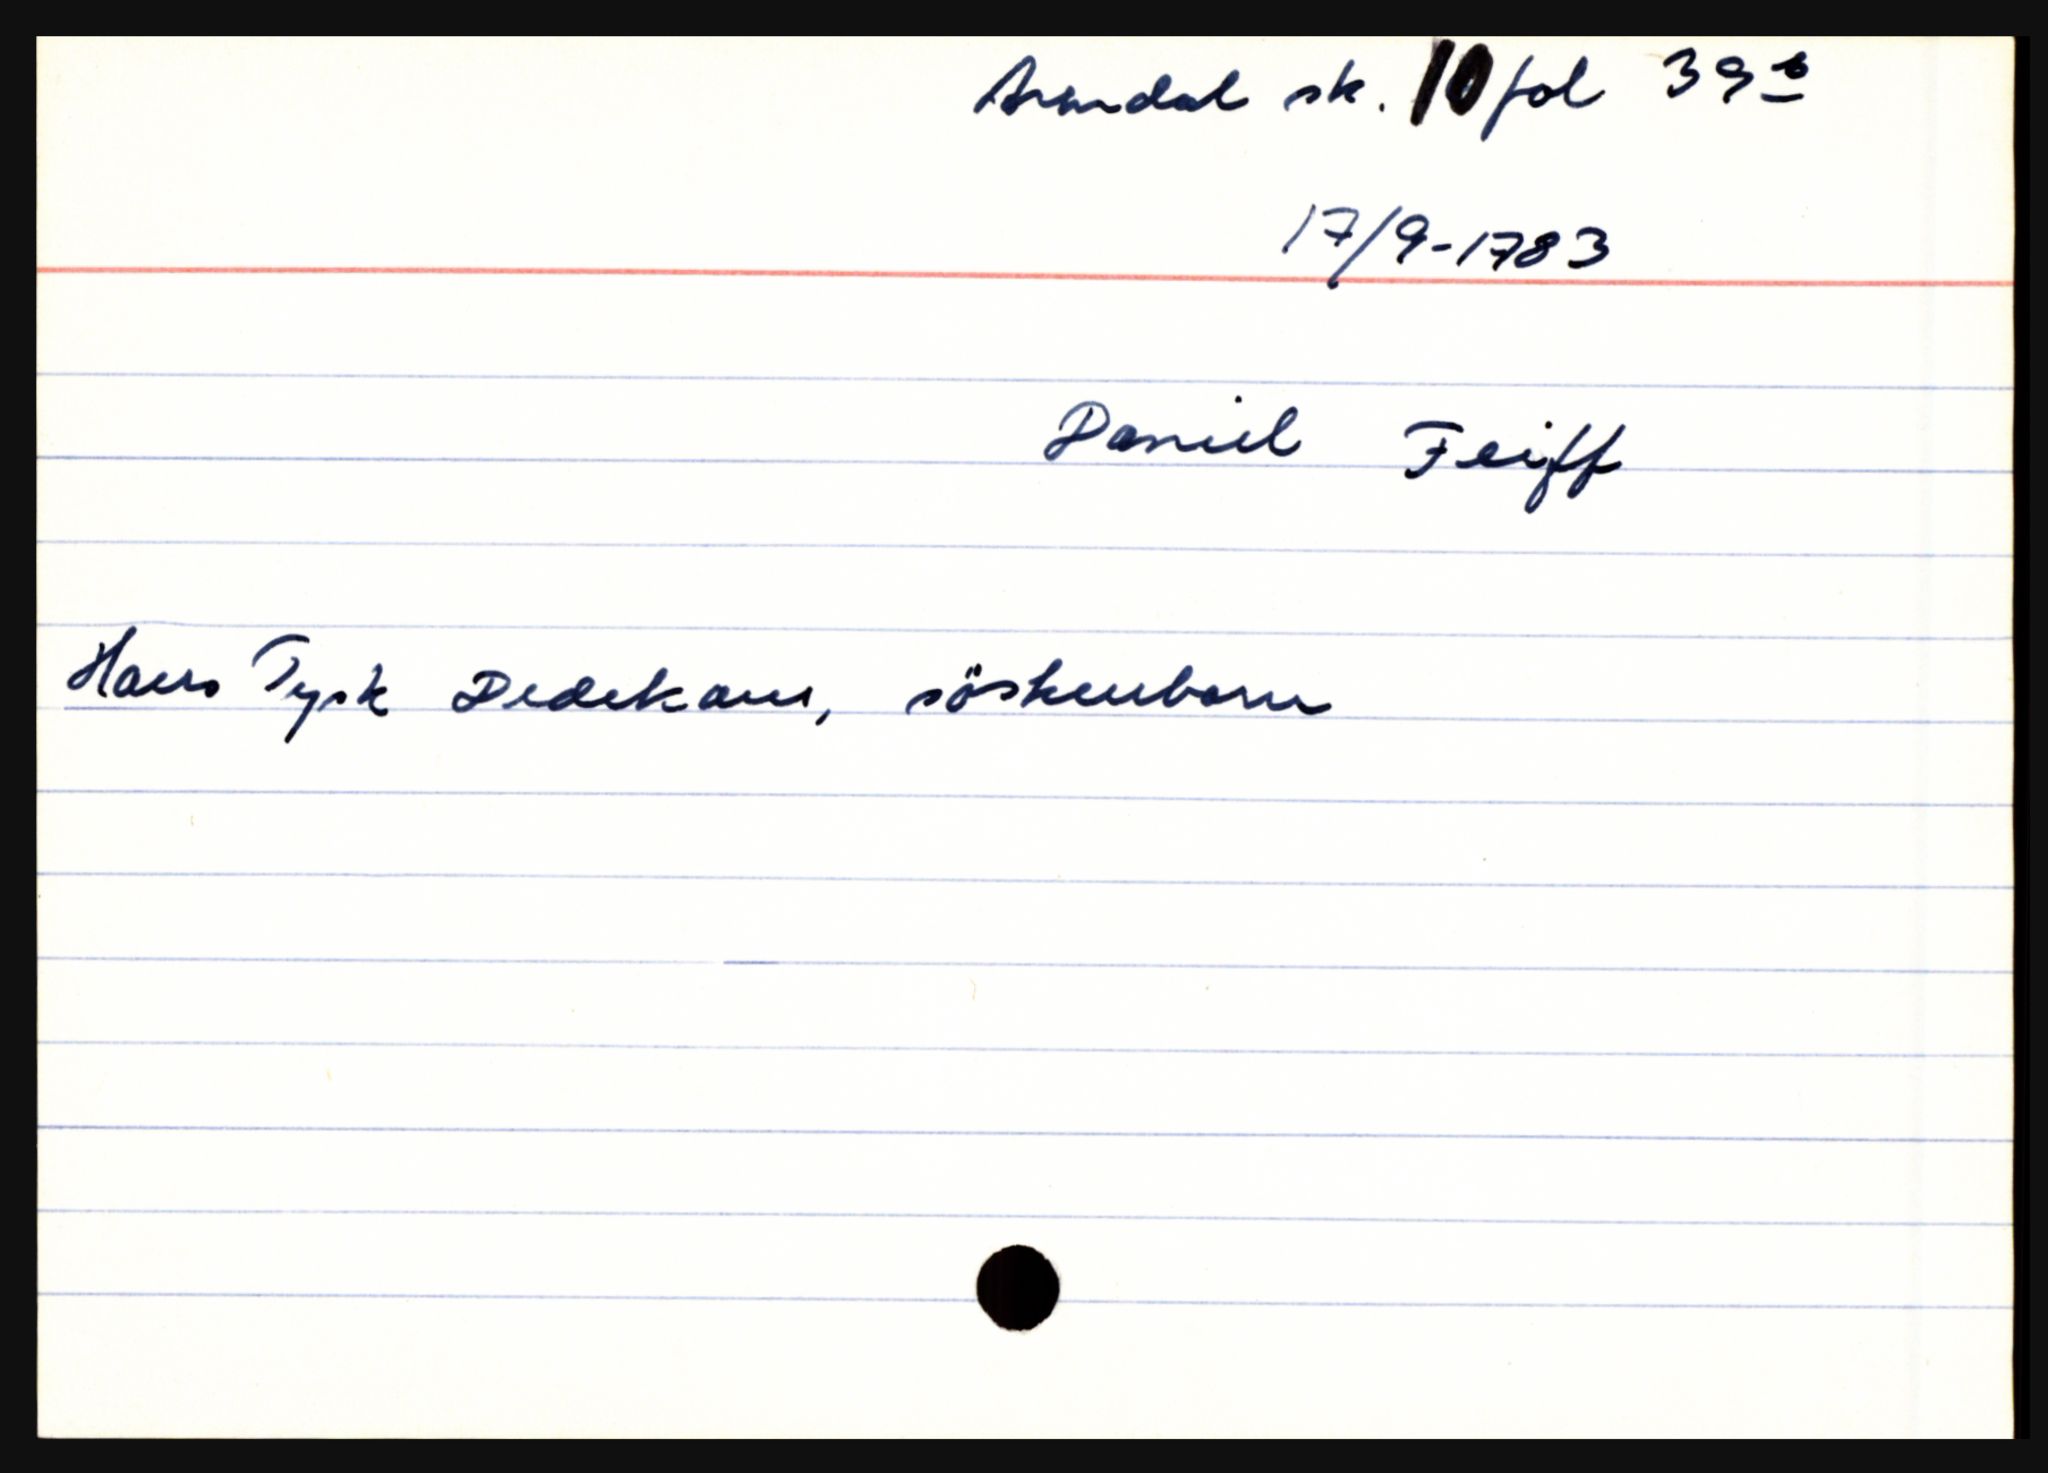 Arendal sk. 10 fol 39 b
17/9-1783
Daniel Feiff
Hans Tysk Dedekam, söskenbarn